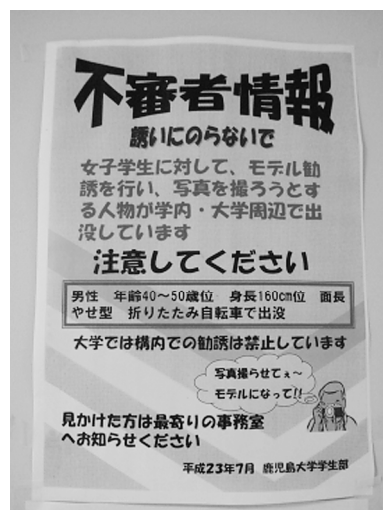 不審者情報
誘いにのらないで
女子学生に対して、モデル勧
誘を行い、写真を撮ろうとす
る人物が学内・大学周辺で出
没しています
注意してください
男性 年齢40～50歳位 身長160cm位 面長
やせ型 折りたたみ自転車で出没
大学では構内での勧誘は禁止しています
写真撮らせてぇ～
モデルになって!!
見かけた方は最寄りの事務室
へお知らせください
平成23年7月 鹿児島大学学生部